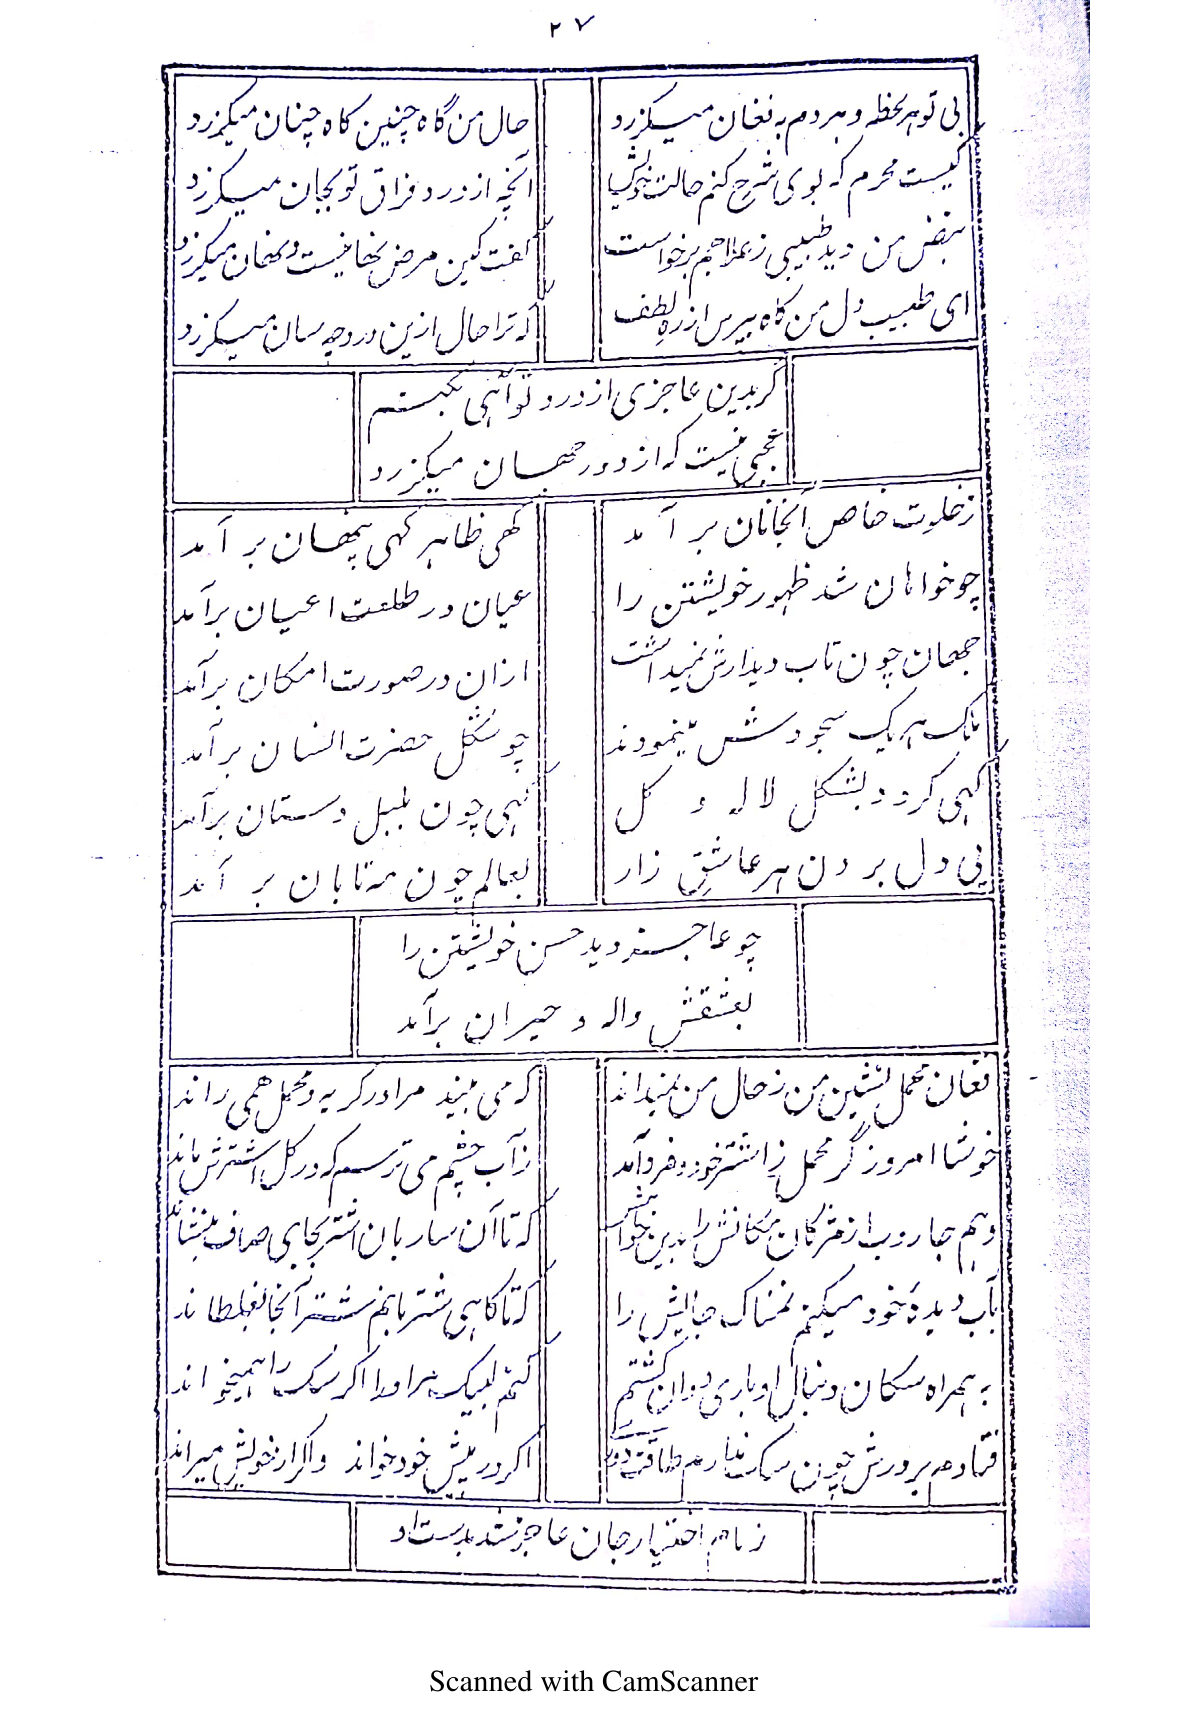 ۲۷
بی تو هر لحظه و هر دم به فغان میگزرد
حال من گاه چنین گاه چنان میگزرد
کیست محرم که بوی شرح کنم حالت خویش
آنچه از درد فراق تو بجان میگزرد
نبض من دید طبیبی ز علاجم برخواست
گفت کین مرض نهانیست و نهان میگزرد
ای طبیب دل من گاه بپرس از ره لطف
که ترا حال ازین درد چه سان میگزرد
گر بدین عاجزی از درد تو آئی بگستم
عجبی نیست که از دور جهان میگزرد
ز خلوت خاص آنجانان بر آمد
گهی ظاهر گهی پنهان بر آمد
چو خواهان شد ظهور خویشتن را
عیان در طلعت اعیان برآمد
جهان چون تاب دیدارش نمیداشت
ازان در صورت امکان برآمد
ملک هر یک سجودش مینمودند
چو شکل حضرت انسان برآمد
گهی گردد بشکل لاله و گل
گهی چون بلبل دستان برآمد
پی دل بردن هر عاشق زار
بعالم چون مه تابان بر آمد
چو عاجز دید حسن خویشتن را
بعشقش واله و حیران برآمد
فغان محمل نشین من ز حال من نمیداند
که می بیند مرا در گریه و محمل همی راند
خوشا امروز گر محمل ز اشتر خود فرو آمد
ز آب چشم می ترسم که در گل اشترش ماند
دهم جاروب از مژگان مکانش را بدین خواهش
که تا آن ساربان اشتر بجای صاف بنشاند
بآب دیدهٔ خود میکنم نمناک جالیش را
که تا گاهی شتر بانم شتر آنجا بغلطاند
به همراه سگان دنبال او باری دوان گشتم
کنم لبیک هر او را اگر سگ را همیخواند
فتادم بر درش چون سگ ندارم طاقت دوری
اگر در پیش خود خواند و اگر از خویش میراند
زمام اختیار جان عاجز شد بدست او
Scanned with CamScanner